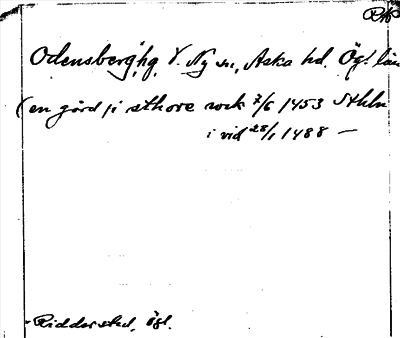 Odensberg, hg, V. Ny sn, Aska hd. Ögl län
(en gård fi sthove rock 7/6 1453 Sthlm
i vid 28/1 1488 —
Ridderstad, Ögl.